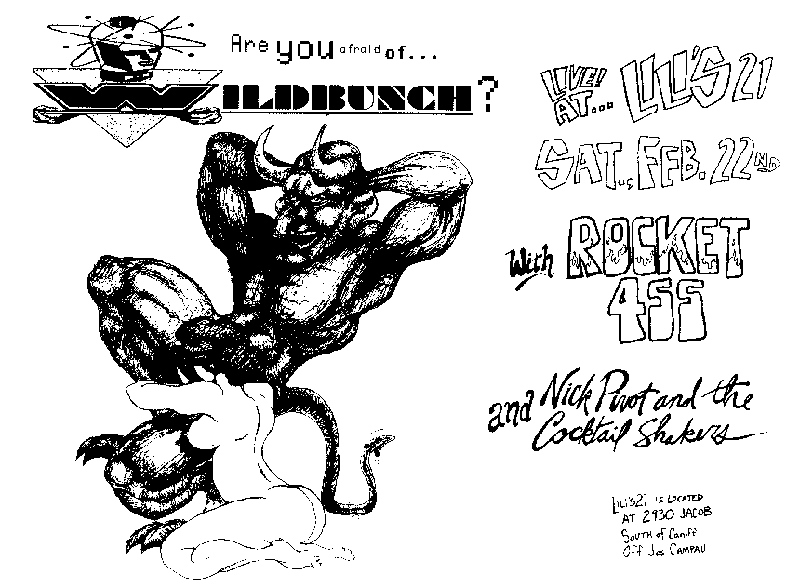 Are you afraid of...
WILDBUNCH?
LIVE!
AT... LILI'S 21
SAT., FEB. 22ND
With ROCKET
455
and Nick Pivot and the
Cocktail Shakers
Lili's 21 IS LOCATED
AT 2930 JACOB
SOUTH of Caniff
Off Jos CAMPAU